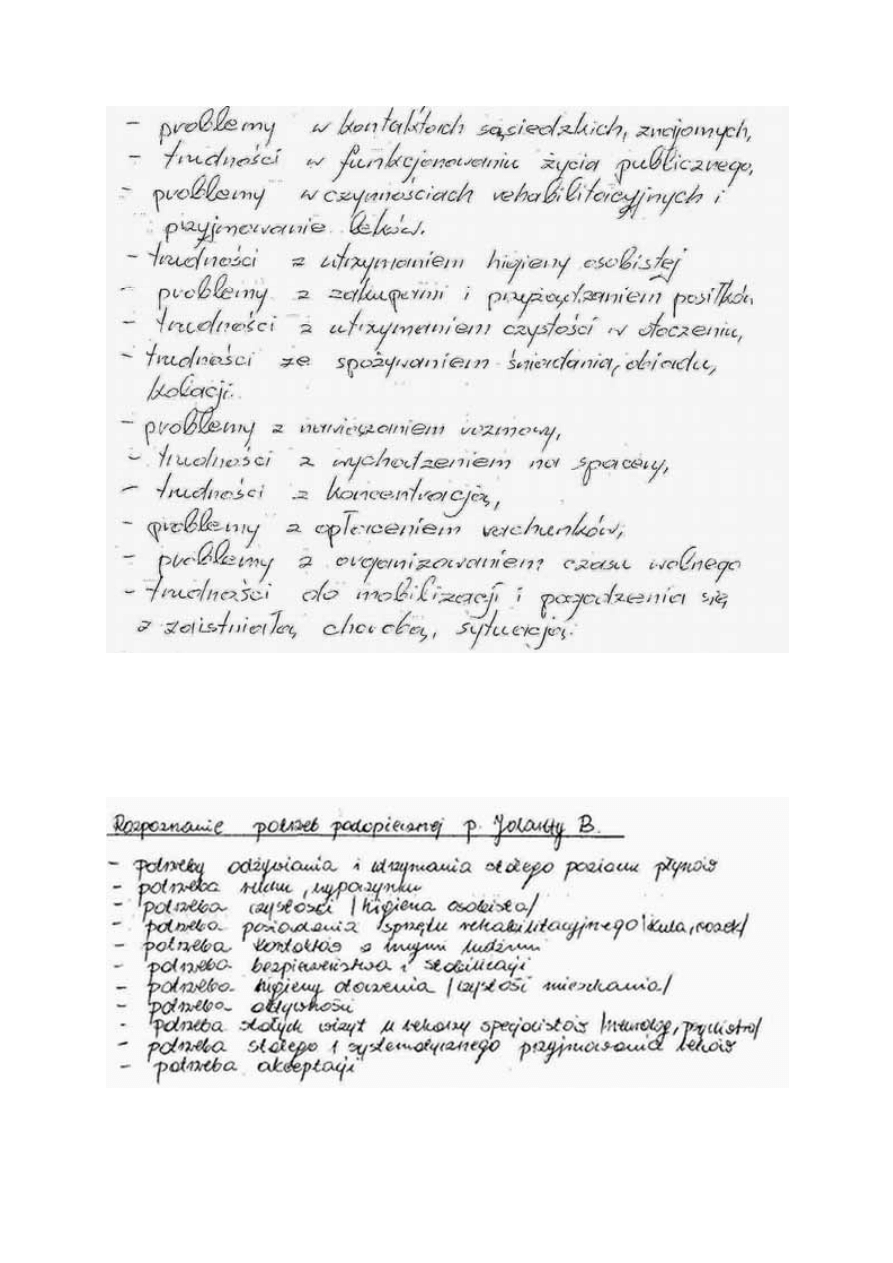 - problemy w kontaktach sąsiedzkich, znajomych,
- trudności w funkcjonowaniu życia publicznego,
- problemy w czynnościach rehabilitacyjnych i
przyjmowanie leków.
- trudności z utrzymaniem higieny osobistej
- problemy z zakupami i przyrządzaniem posiłków
- trudności z utrzymaniem czystości w otoczeniu,
- trudności ze spożywaniem śniadania, obiadu,
kolacji.
- problemy z nawiązaniem rozmowy,
- trudności z wychodzeniem na spacery,
- trudności z koncentracją,
- problemy z opłaceniem rachunków,
- problemy z organizowaniem czasu wolnego
- trudności do mobilizacji i pogodzenia się
z zaistniałą chorobą, sytuacją.
Rozpoznanie potrzeb podopiecznej p. Jolanty B.
- potrzeby odżywiania i utrzymania stałego poziomu płynów
- potrzeba ruchu, wypoczynku
- potrzeba czystości /higiena osobista/
- potrzeba posiadania sprzętu rehabilitacyjnego /kula, wózek/
- potrzeba kontaktów z innymi ludźmi
- potrzeba bezpieczeństwa i stabilizacji
- potrzeba higieny otoczenia /czystość mieszkania/
- potrzeba aktywności
- potrzeba stałych wizyt u lekarzy specjalistów /neurolog, psychiatra/
- potrzeba stałego i systematycznego przyjmowania leków
- potrzeba akceptacji